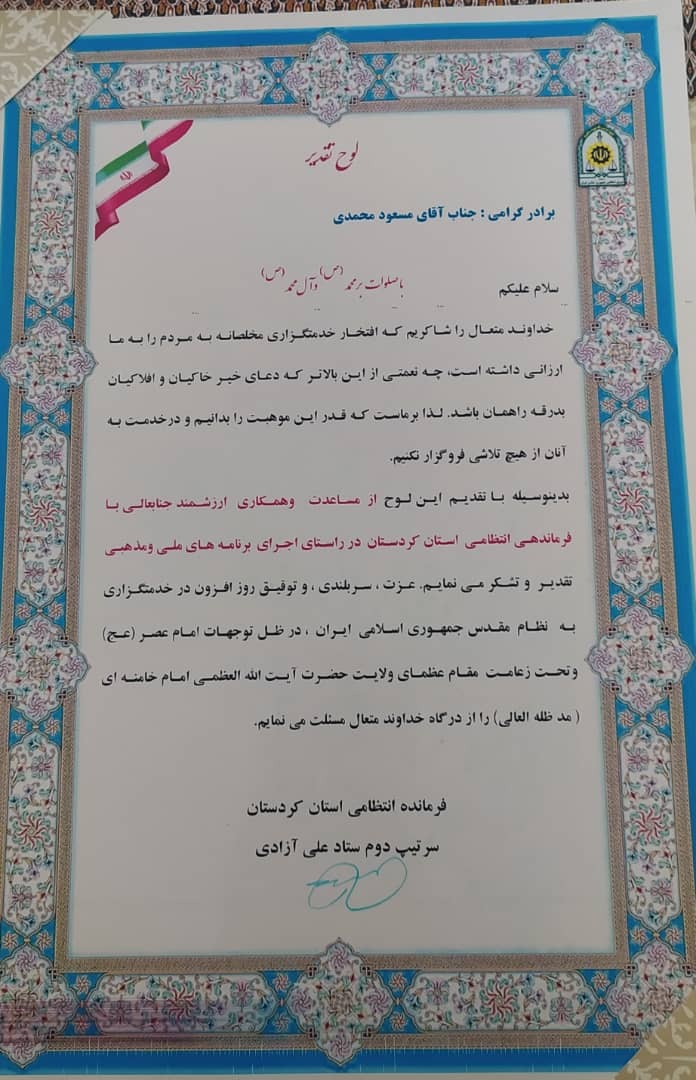 لوح تقدیر
برادر گرامی : جناب آقای مسعود محمدی
سلام علیکم
با صلوات بر محمد (ص) وآل محمد (ص)
خداوند متعال را شاکریم که افتخار خدمتگزاری مخلصانه به مردم را به ما
ارزانی داشته است، چه نعمتی از این بالاتر که دعای خیر خاکیان و افلاکیان
بدرقه راهمان باشد. لذا برماست که قدر این موهبت را بدانیم و درخدمت به
آنان از هیچ تلاشی فروگزار نکنیم.
بدینوسیله با تقدیم این لوح از مساعدت وهمکاری ارزشمند جنابعالی با
فرماندهی انتظامی استان کردستان در راستای اجرای برنامه های ملی ومذهبی
تقدیر و تشکر می نمایم. عزت ، سربلندی ، و توفیق روز افزون در خدمتگزاری
به نظام مقدس جمهوری اسلامی ایران ، در ظل توجهات امام عصر (عج)
وتحت زعامت مقام عظمای ولایت حضرت آیت الله العظمی امام خامنه ای
( مد ظله العالی) را از درگاه خداوند متعال مسئلت می نمایم.
فرمانده انتظامی استان کردستان
سرتیپ دوم ستاد علی آزادی